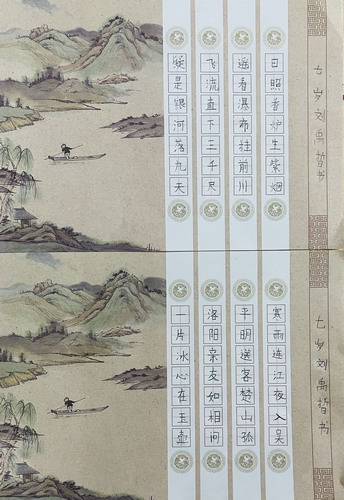 七岁刘禹书
日照香炉生紫烟
遥看瀑布挂前川
飞流直下三千尺
疑是银河落九天
七岁刘禹书
寒雨连江夜入吴
平明送客楚山孤
洛阳亲友如相问
一片冰心在玉壶